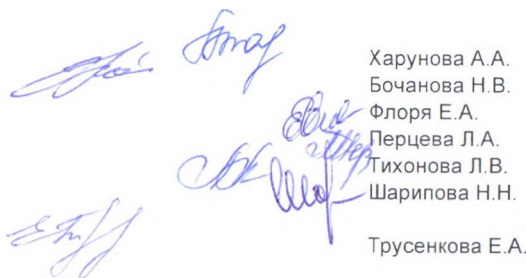 Харунова А.А.
Бочанова Н.В.
Флоря Е.А.
Перцева Л.А.
Тихонова Л.В.
Шарипова Н.Н.
Трусенкова Е.А.